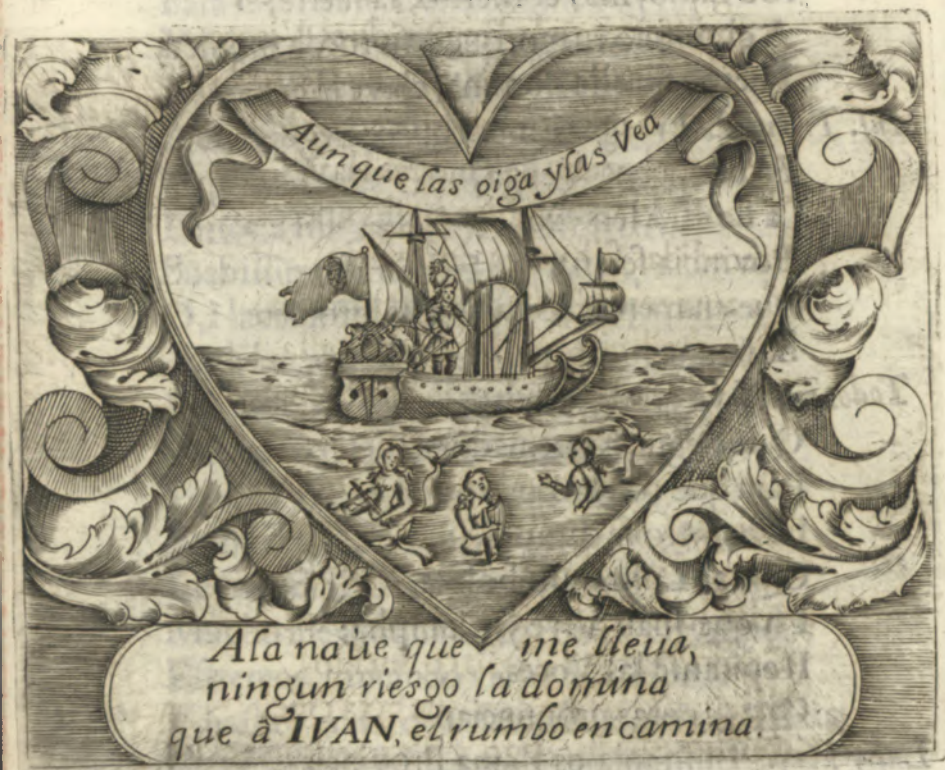 Aun que las oiga ylas Vea
Ala naue que me lleua,
ningun riesgo la domina
que â IVAN, el rumbo encamina.